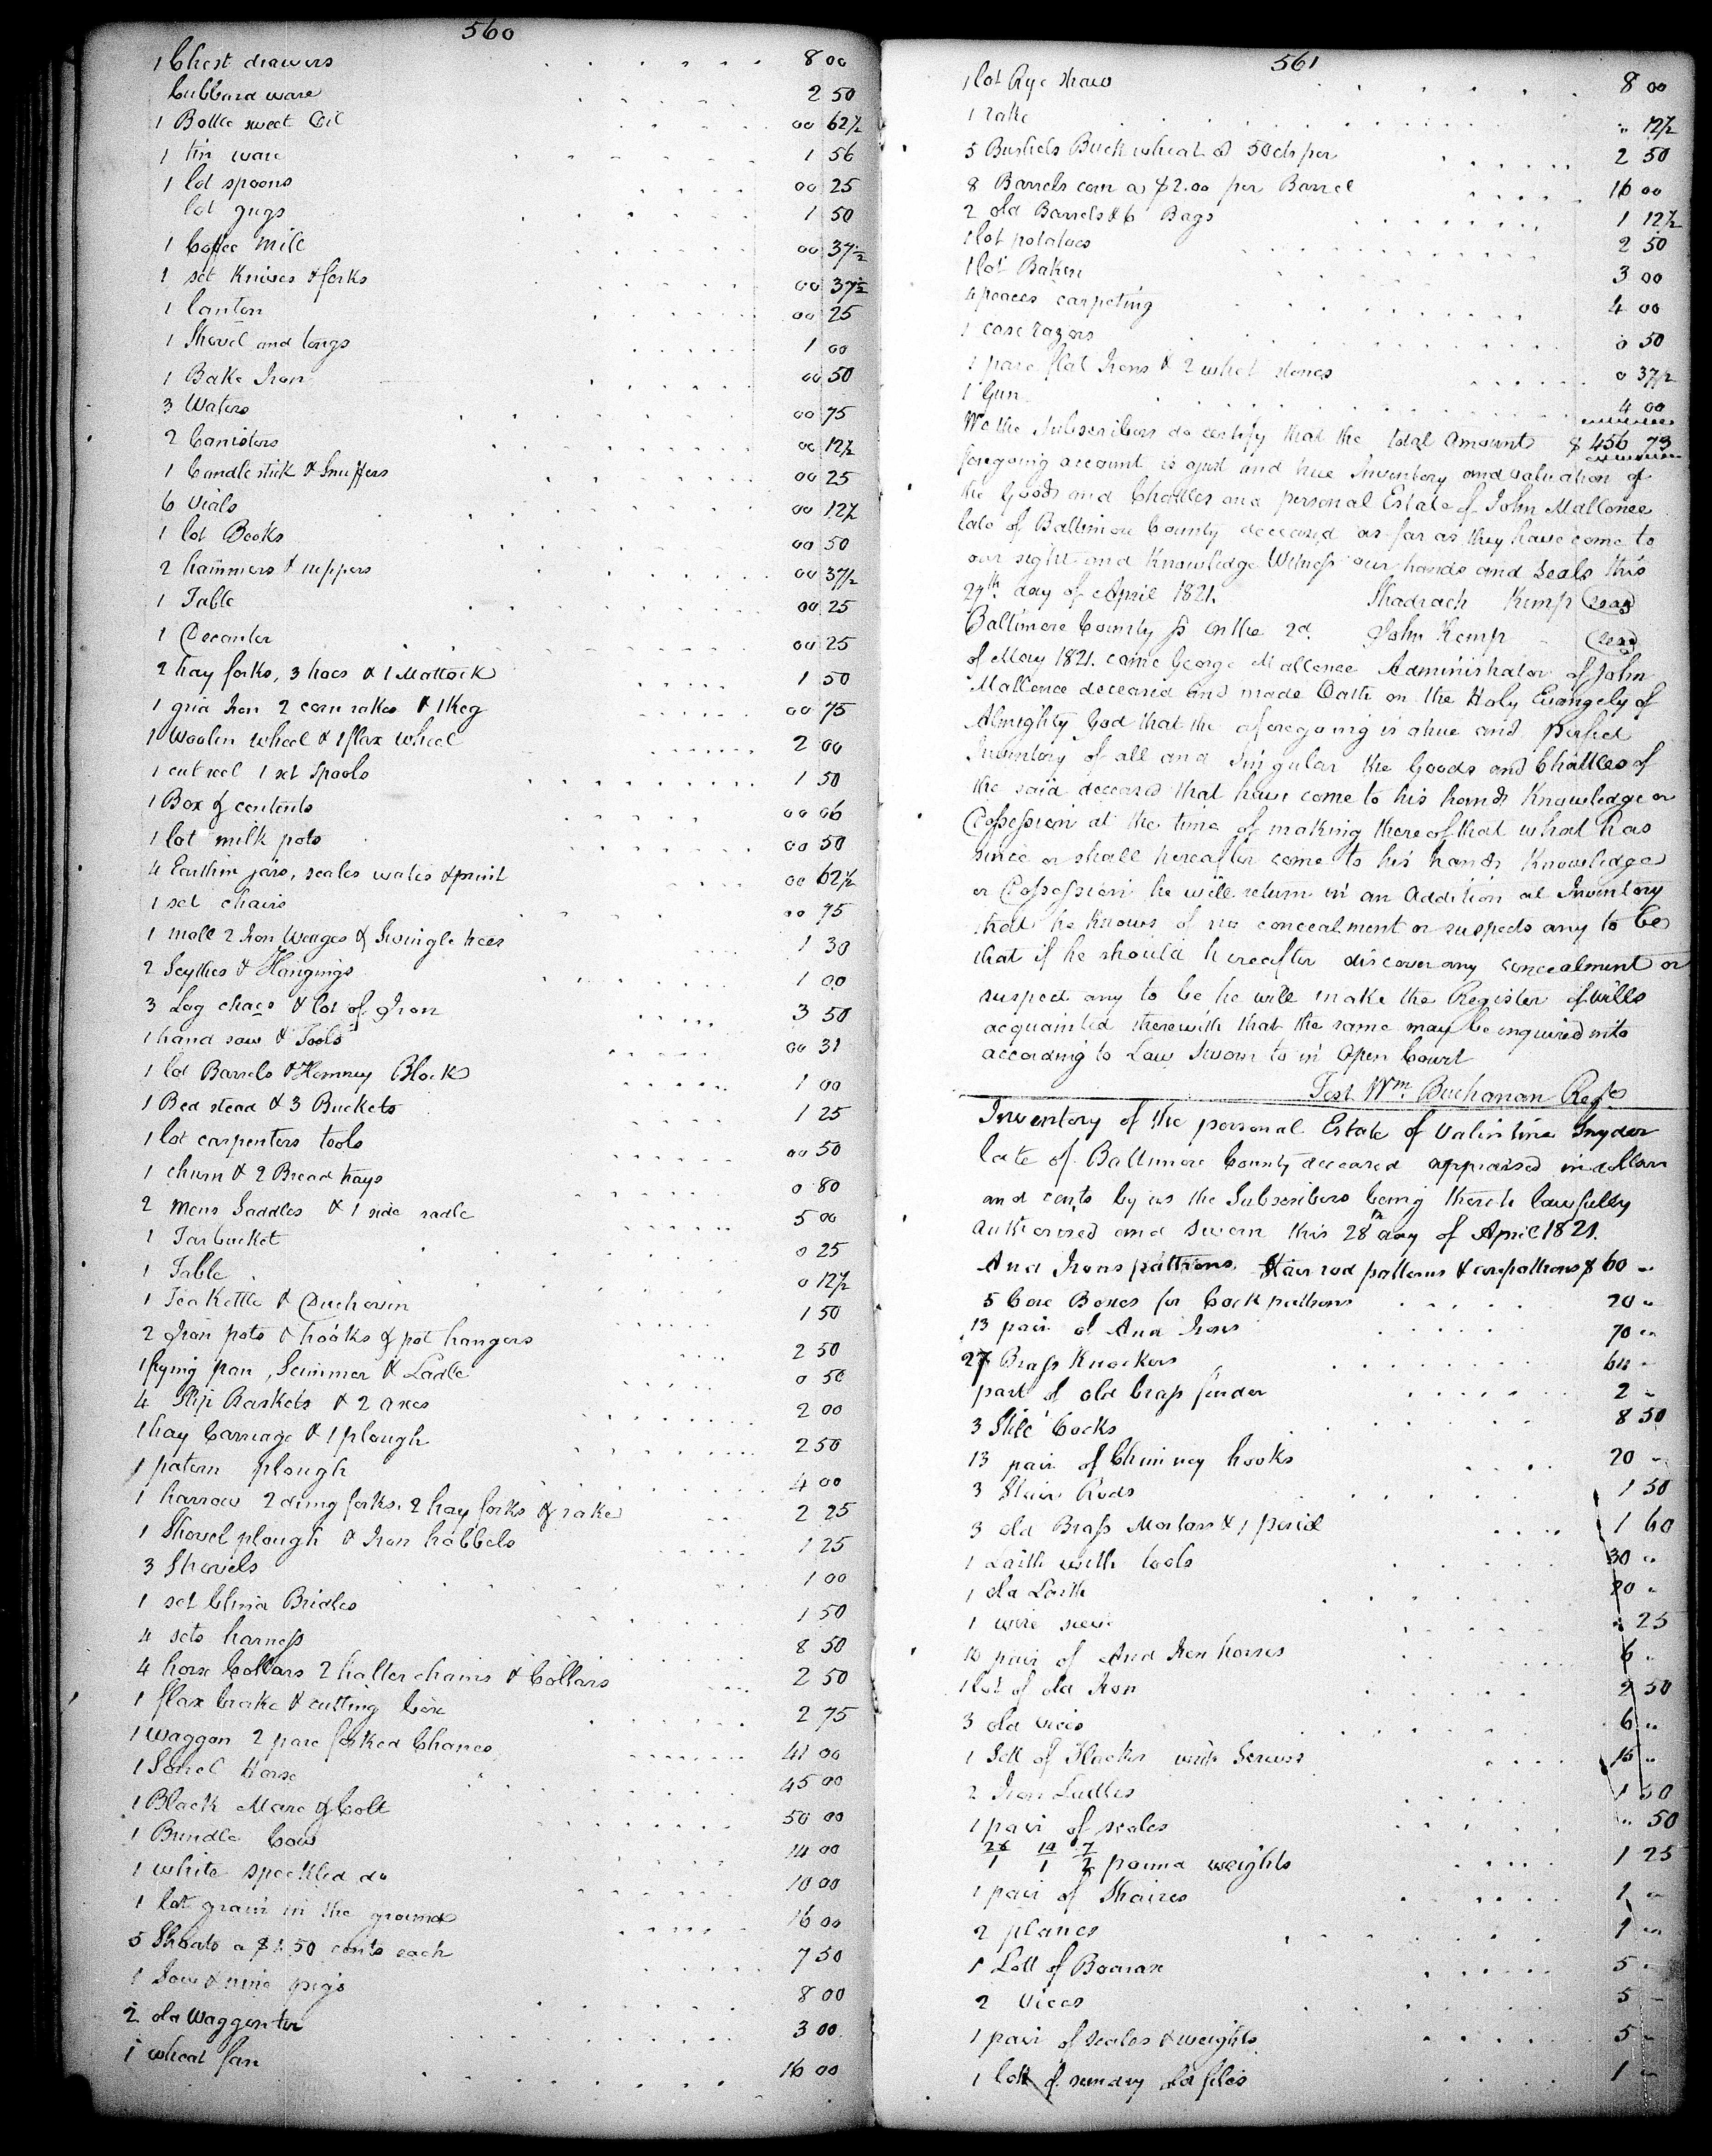 560
1 Chest drawers 8 00
Cubbard ware 2 50
1 Bottle sweet Oil 00 62½
1 tin ware 1 56
1 lot spoons 00 25
lot gugs 1 50
1 Coffee Mill 00 37½
1 set Knives & forks 00 37½
1 lanton 00 25
1 Shovel and tongs 1 00
1 Bake Iron 00 50
3 Waters 00 75
2 Canisters 00 12½
1 Candle stick & Snuffers 00 25
6 Vials 00 12½
1 lot Books 00 50
2 hammers & nippers 00 37½
1 Table 00 25
1 Decanter 00 25
2 hay forks, 3 hoes & 1 Mattock 1 50
1 grid Iron 2 corn rakes & 1 Keg 00 75
1 Woolen wheel & 1 flax wheel 2 00
1 cut reel 1 set Spools 1 50
1 Box & contents 00 06
1 lot milk pots 00 50
4 Earthin jars, scales waits & print 00 62½
1 set chairs 00 75
1 mall 2 Iron Wedges & Swingle trees 1 30
2 Scythes & Hangings 1 00
3 Log chaes & lot of Iron 3 50
1 hand saw & Tools 00 31
1 lot Barrels & Homney Block 1 00
1 Bed stead & 3 Buckets 1 25
1 lot carpenters tools 00 50
1 churn & 2 Bread trays 0 80
2 Mens Saddles & 1 side sadle 5 00
1 Tar bucket 0 25
1 Table 0 12½
1 Tea Kettle & Duchovin 1 50
2 Iron pots & hooks & pot hangers 2 50
1 frying pan, Scimmer & Ladle 0 50
4 Slip Baskets & 2 axes 2 00
1 hay Carriage & 1 plough 2 50
1 patern plough 4 00
1 harrow 2 dung forks, 2 hay forks & rake 2 25
1 Shovel plough & Iron hobbels 1 25
3 Shovels 1 00
1 set China Bridles 1 50
4 sets harness 8 50
4 horse Collars 2 halter chains & Collars 2 50
1 flax brake & cutting box 2 75
1 waggon 2 pare forked Chanes 41 00
1 Sorrel Horse 45 00
1 Black Mare & Colt 50 00
1 Brindle Cow 14 00
1 white speckled do 10 00
1 lot grain in the ground 16 00
5 Shoats a $1.50 cents each 7 50
1 Sow & nine pigs 8 00
2 old Waggon tir 3 00
1 wheat fan 16 00
561
1 lot Rye straw 8 00
1 rake " 12½
5 Bushels Buck wheat @ 50 cts per 2 50
8 Barrels corn a $2.00 per Barrel 16 00
2 old Barrels & 6 Bags 1 12½
1 lot potatoes 2 50
1 lot Baken 3 00
4 peaces carpeting 4 00
1 case razors 0 50
1 pare flat Irons & 2 whet stones 0 37½
1 Gun 4 00
We the Subscribers do certify that the total Amount $ 456 73
foregoing account is a just and true Inventory and valuation of
the Goods and Chattles and personal Estate of John Mallonee
late of Baltimore County deceased as far as they have come to
our sight and Knowledge Witness our hands and seals this
27th day of April 1821. Shadrach Kemp (seal)
Baltimore County ss on the 2d. John Kemp (seal)
of May 1821. came George Mallonee Administrator of John
Mallonee deceased and made Oath on the Holy Evangely of
Almighty God that the aforegoing is a true and perfect
Inventory of all and singular the Goods and Chattles of
the said deceased that have come to his hands Knowledge or
Possession at the time of making thereof that what has
since or shall hereafter come to his hands Knowledge
or Possession he will return in an Addition al Inventory
that he Knows of no concealment or suspects any to be
that if he should hereafter discover any concealment or
suspect any to be he will make the Register of wills
acquainted therewith that the same may be enquired into
according to Law Sworn to in Open Court
Test Wm. Buchanan Regr
Inventory of the personal Estate of Valintine Snyder
late of Baltimore County deceased appraised in dollars
and cents by us the Subscribers being thereto lawfully
authorised and sworn this 28th day of April 1821.
And Irons pattrons. Stair rod patterns & corpattrons $ 60 "
5 Core Boxes for Cock pattrons 20 "
13 pair of And Irons 70 "
27 Brass Knockers 64 "
part of old brass finder 2 "
3 Still Cocks 8 50
13 pair of Chimney hooks 20 "
3 Stair Rods 1 50
3 old Brass Mortars & 1 pestil 1 60
1 Laith with tools 30 "
1 old Laith 20 "
1 wire seive " 25
10 pair of And Iron horses 6 "
1 lot of old Iron 2 50
3 old vices 6 "
1 Sett of Flasks with Screws 15 "
2 Iron Ladles 1 50
1 pair of scales " 50
28/1 14/1 7/2 pound weights 1 25
1 pair of Shaires 1 "
2 planes 1 "
1 Lott of Boarax 5 "
2 Vices 5 "
1 pair of scales & weights 5 "
1 lott of sundry old files 1 "